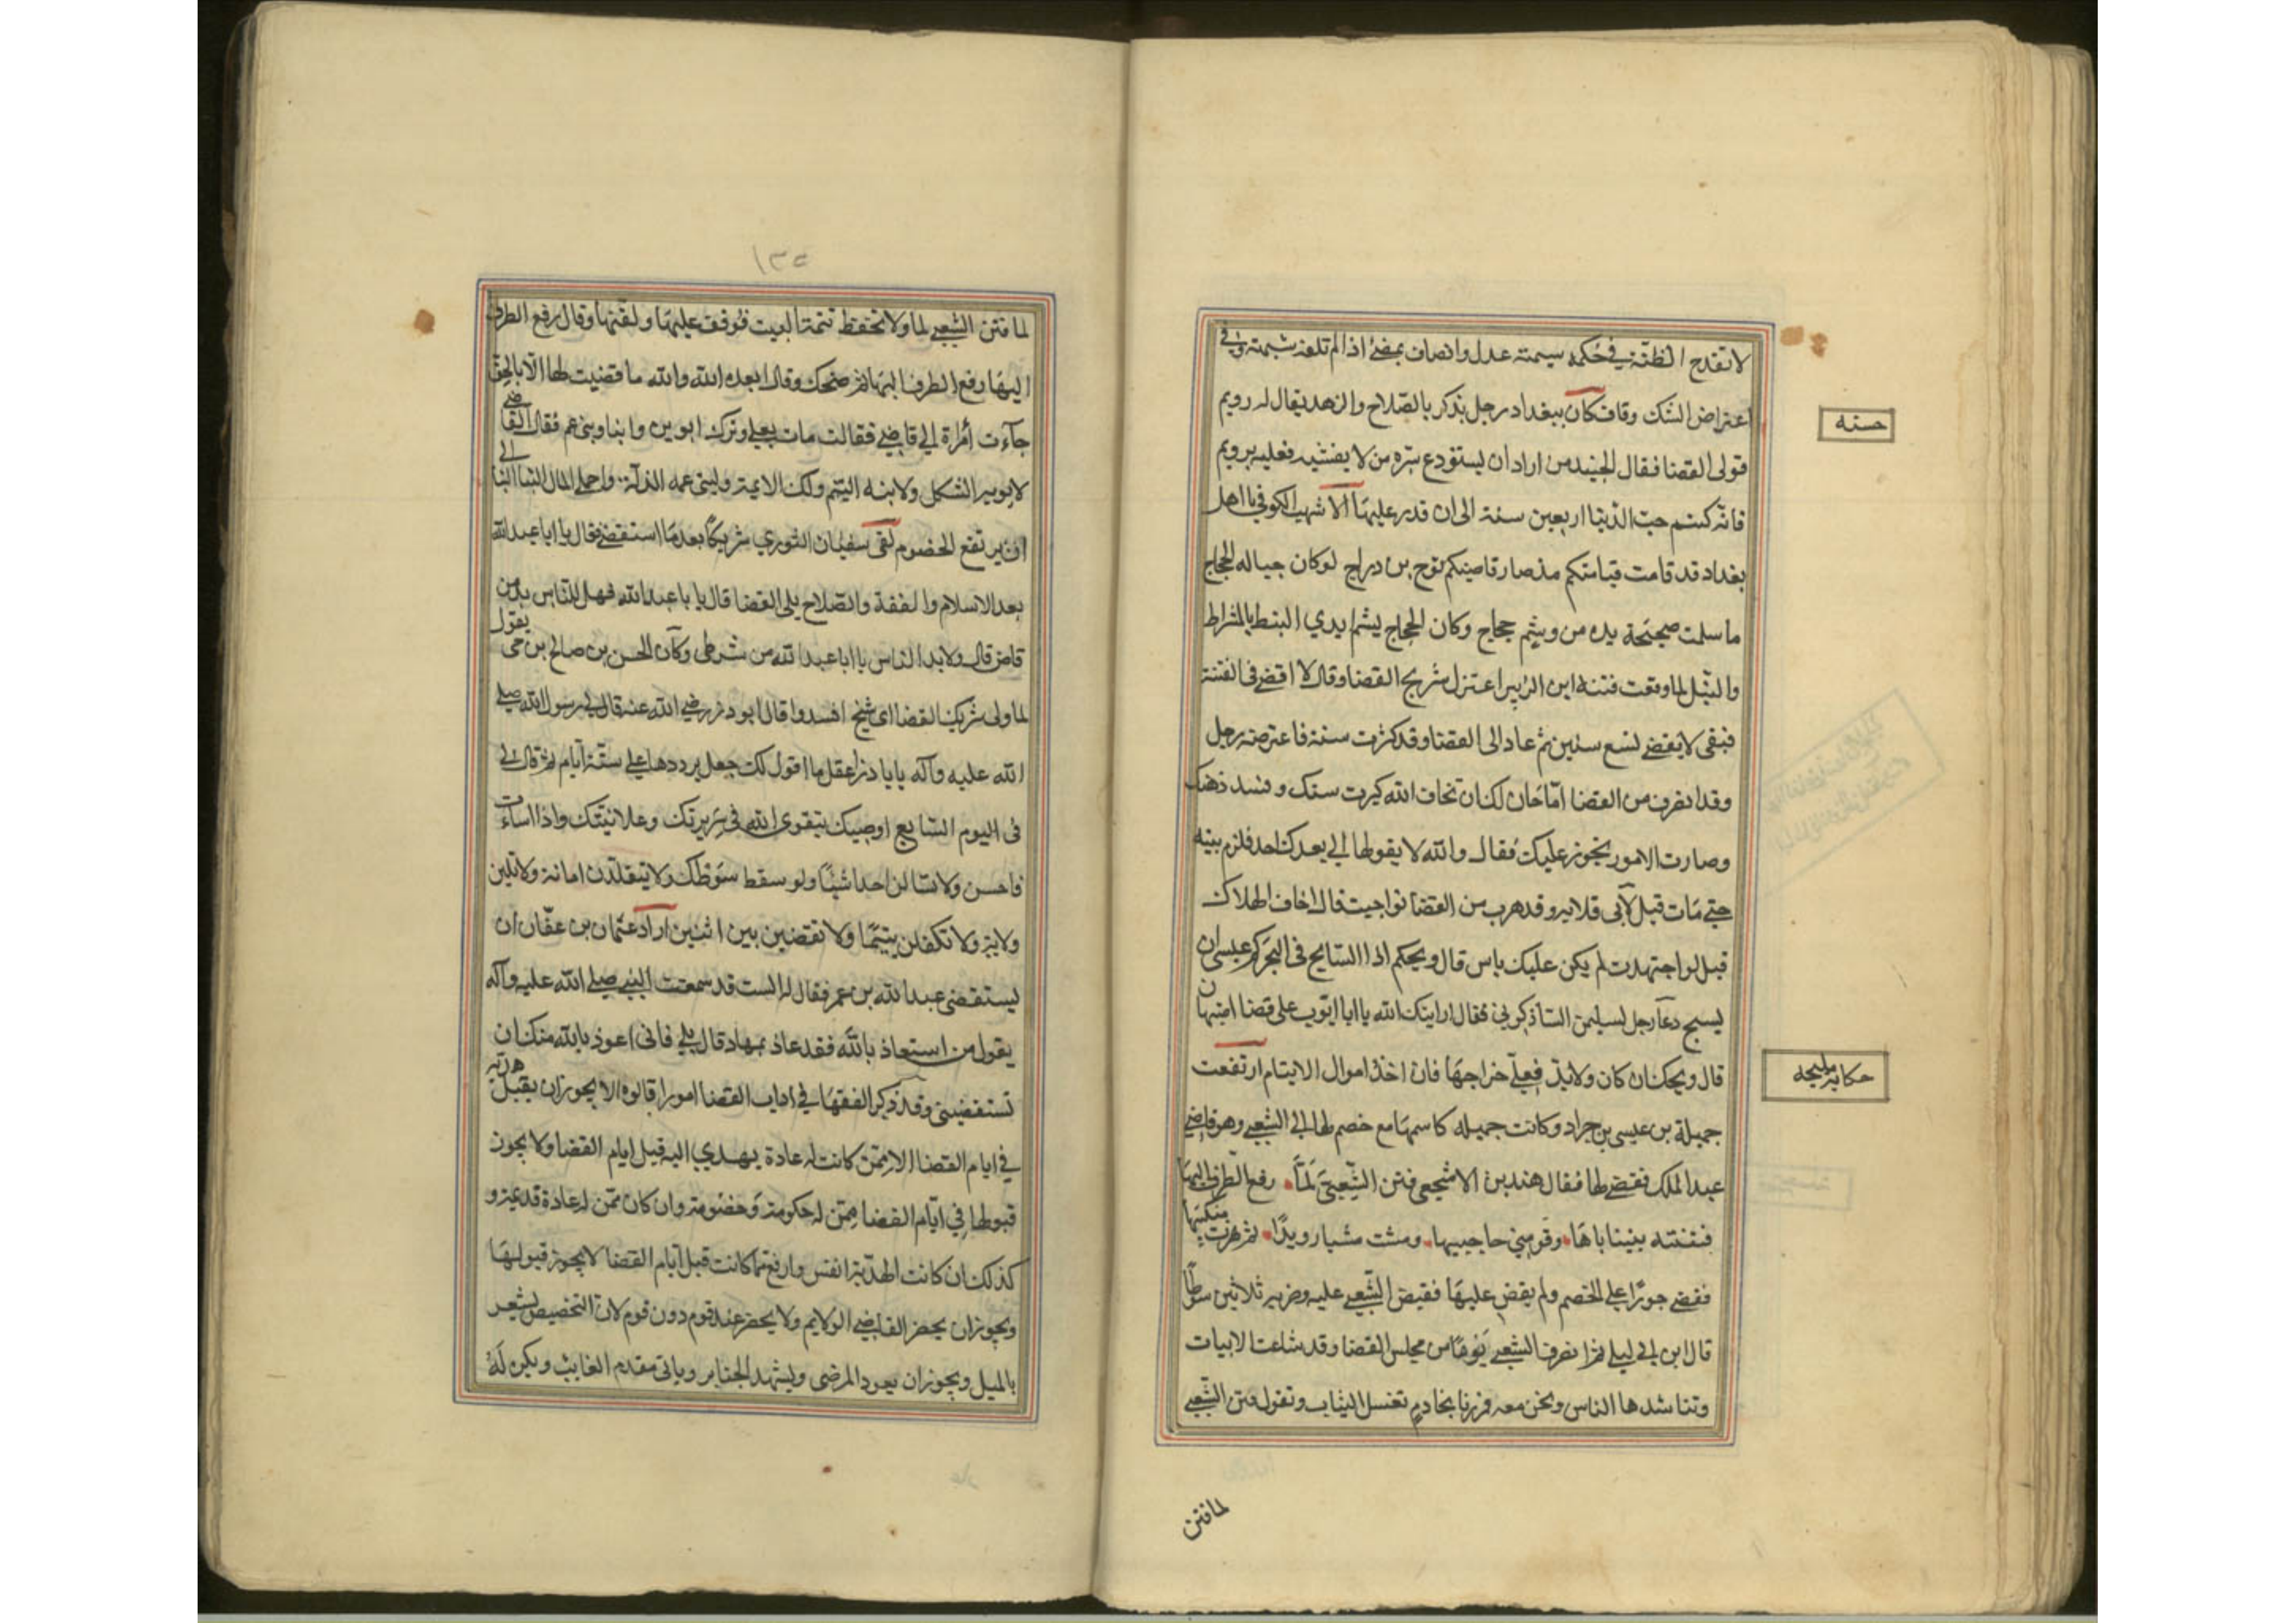 لا تقدح الظنّة في حكمه سيمته عدل وانصاف يمضي اذا لم تلفه شبهة وفي
اعتراض الشك وقاف كان ببغداد رجل يذكر بالصّلاح والزهد يقال له رويم
فولى القضا فقال الجنيد من اراد ان يستودع سرّه من لا يفشيه فعليه برويم
فانّه كتم حبّ الدّنيا اربعين سنة الى ان قدر عليها الاشهب الكوفي يا اهل
بغداد قد قامت قيامتكم مذ صار قاضيكم نوح بن دراج لو كان حيا له الحجاج
ما سلمت صحيحة يده من وشم حجاج وكان الحجاج يشم ايدي النبط بالمشراط
والنيل لما وقعت فتنة ابن الزبير اعتزل شريح القضا وقال لا اقضي في الفتنة
فبقى لا يقضي تسع سنين ثم عاد الى القضا وقد كبرت سنه فاعترضه رجل
وقد انصرف من القضا امّا حان لك ان تخاف الله كبرت سنك وفسد ذهنك
وصارت الامور تجوز عليك فقال والله لا يقولها لي بعدك احد فلزم بيته
حتي مات قيل لابي قلابه وقد هرب من القضا لو اجبت قال اخاف الهلاك
قيل لو اجتهدت لم يكن عليك باس قال ويحكم اذا السابح في البحر كم عسى ان
يسبح دعا رجل لسليمن الشاذكوني فقال ارانيك الله يا ابا ايوب على قضا اصبهان
قال ويحك ان كان ولا بد فعلي خراجها فان اخذ اموال الايتام ارتفعت
جميلة بن عيسى بن جراد وكانت جميله كاسمها مع خصم لها الي الشعبي وهو قاضي
عبد الملك فقضي لها فقال هند بن الاشجعي فتن الشّعبيّ لمّا رفع الطرف اليها
فتنته ببنان اباها وقوسي حاجبيها ومشت مشيا رويدًا ثم هزت منكبيها
فقضي جورًا علي الخصم ولم يقض عليها فقبض الشّعبي عليه وضربه ثلاثين سوطًا
قال ابن ابي ليلي ثم انصرف الشعبي يومًا من مجلس القضا وقد شاعت الابيات
وتناشدها الناس ونحن معه فمررنا بخادم تغسل الثياب وتقول فتن الشّعبي
لما فتن
حسنه
حكاية مليحه
١٣٥
لما فتن الشّعبي لما ولا تحفظ تتمة البيت فوقف عليها ولقّنها وقال رفع الطرف
اليها رفع الطرف اليها ثم ضحك وقال ابعده الله والله ما قضيت لها الّا بالحق
جآءت أمراة الي قاضي فقالت مات بعلي وترك ابوين وابنا وبني عم فقال القاضي
لابويه الثكل ولابنه اليتم ولك الايمة ولبني عمه الذلّة واحملي المال الينا الي
ان يرتفع الخصوم لقى سفيان الثوري شريكًا بعد مّا استقضي فقال يا ابا عبد الله
بعد الاسلام والفقه والصّلاح يلي القضا قال يا با عبد الله فهل للنّاس بد من
قاض قال ولا بد الناس يا ابا عبد الله من شرطي وكان الحسن بن صالح بن حى يقول
لما ولى شريك القضا اي شيخ افسدوا قال ابو ذر رضي الله عنه قال لي رسول الله صلي
الله عليه وآله يا با ذر اعقل ما اقول لك جعل يرددها علي ستّة ايّام ثم قال لي
في اليوم السّابع اوصيك بتقوى الله في سريرتك وعلانيتك واذا اسات
فاحسن ولا تسالن احدا شيئًا ولو سقط سوطك ولا تتقلدن امانة ولا تلين
ولاية ولا تكفلن يتيمًا ولا تقضين بين اثنين اراد عثمان بن عفّان ان
يستقضى عبد الله بن عمر فقال له الست قد سمعت النبي صلي الله عليه وآله
يقول من استعاذ بالله فقد عاذ بمعاذ قال بلي فاني اعوذ بالله منك ان
تستقضيني وقد ذكر الفقها في اداب القضا امورا قالوه الا يجوز ان يقبل هدية
في ايام القضا الا ممّن كانت له عادة يهدي اليه قبل ايام القضا ولا يجوز
قبولها في ايّام القضا ممّن له حكومة وخصومة وان كان ممّن له عادة قديمة و
كذلك ان كانت الهديّة انفس وارفع ممّا كانت قبل ايّام القضا لا يجوز قبولها
ويجوز ان يحضر القاضي الولايم ولا يحضر عند قوم دون قوم لان التخصيص يشعر
بالميل ويجوز ان يعود المرضى ويشهد الجنايز وياتي مقدم الغايب ويكره له